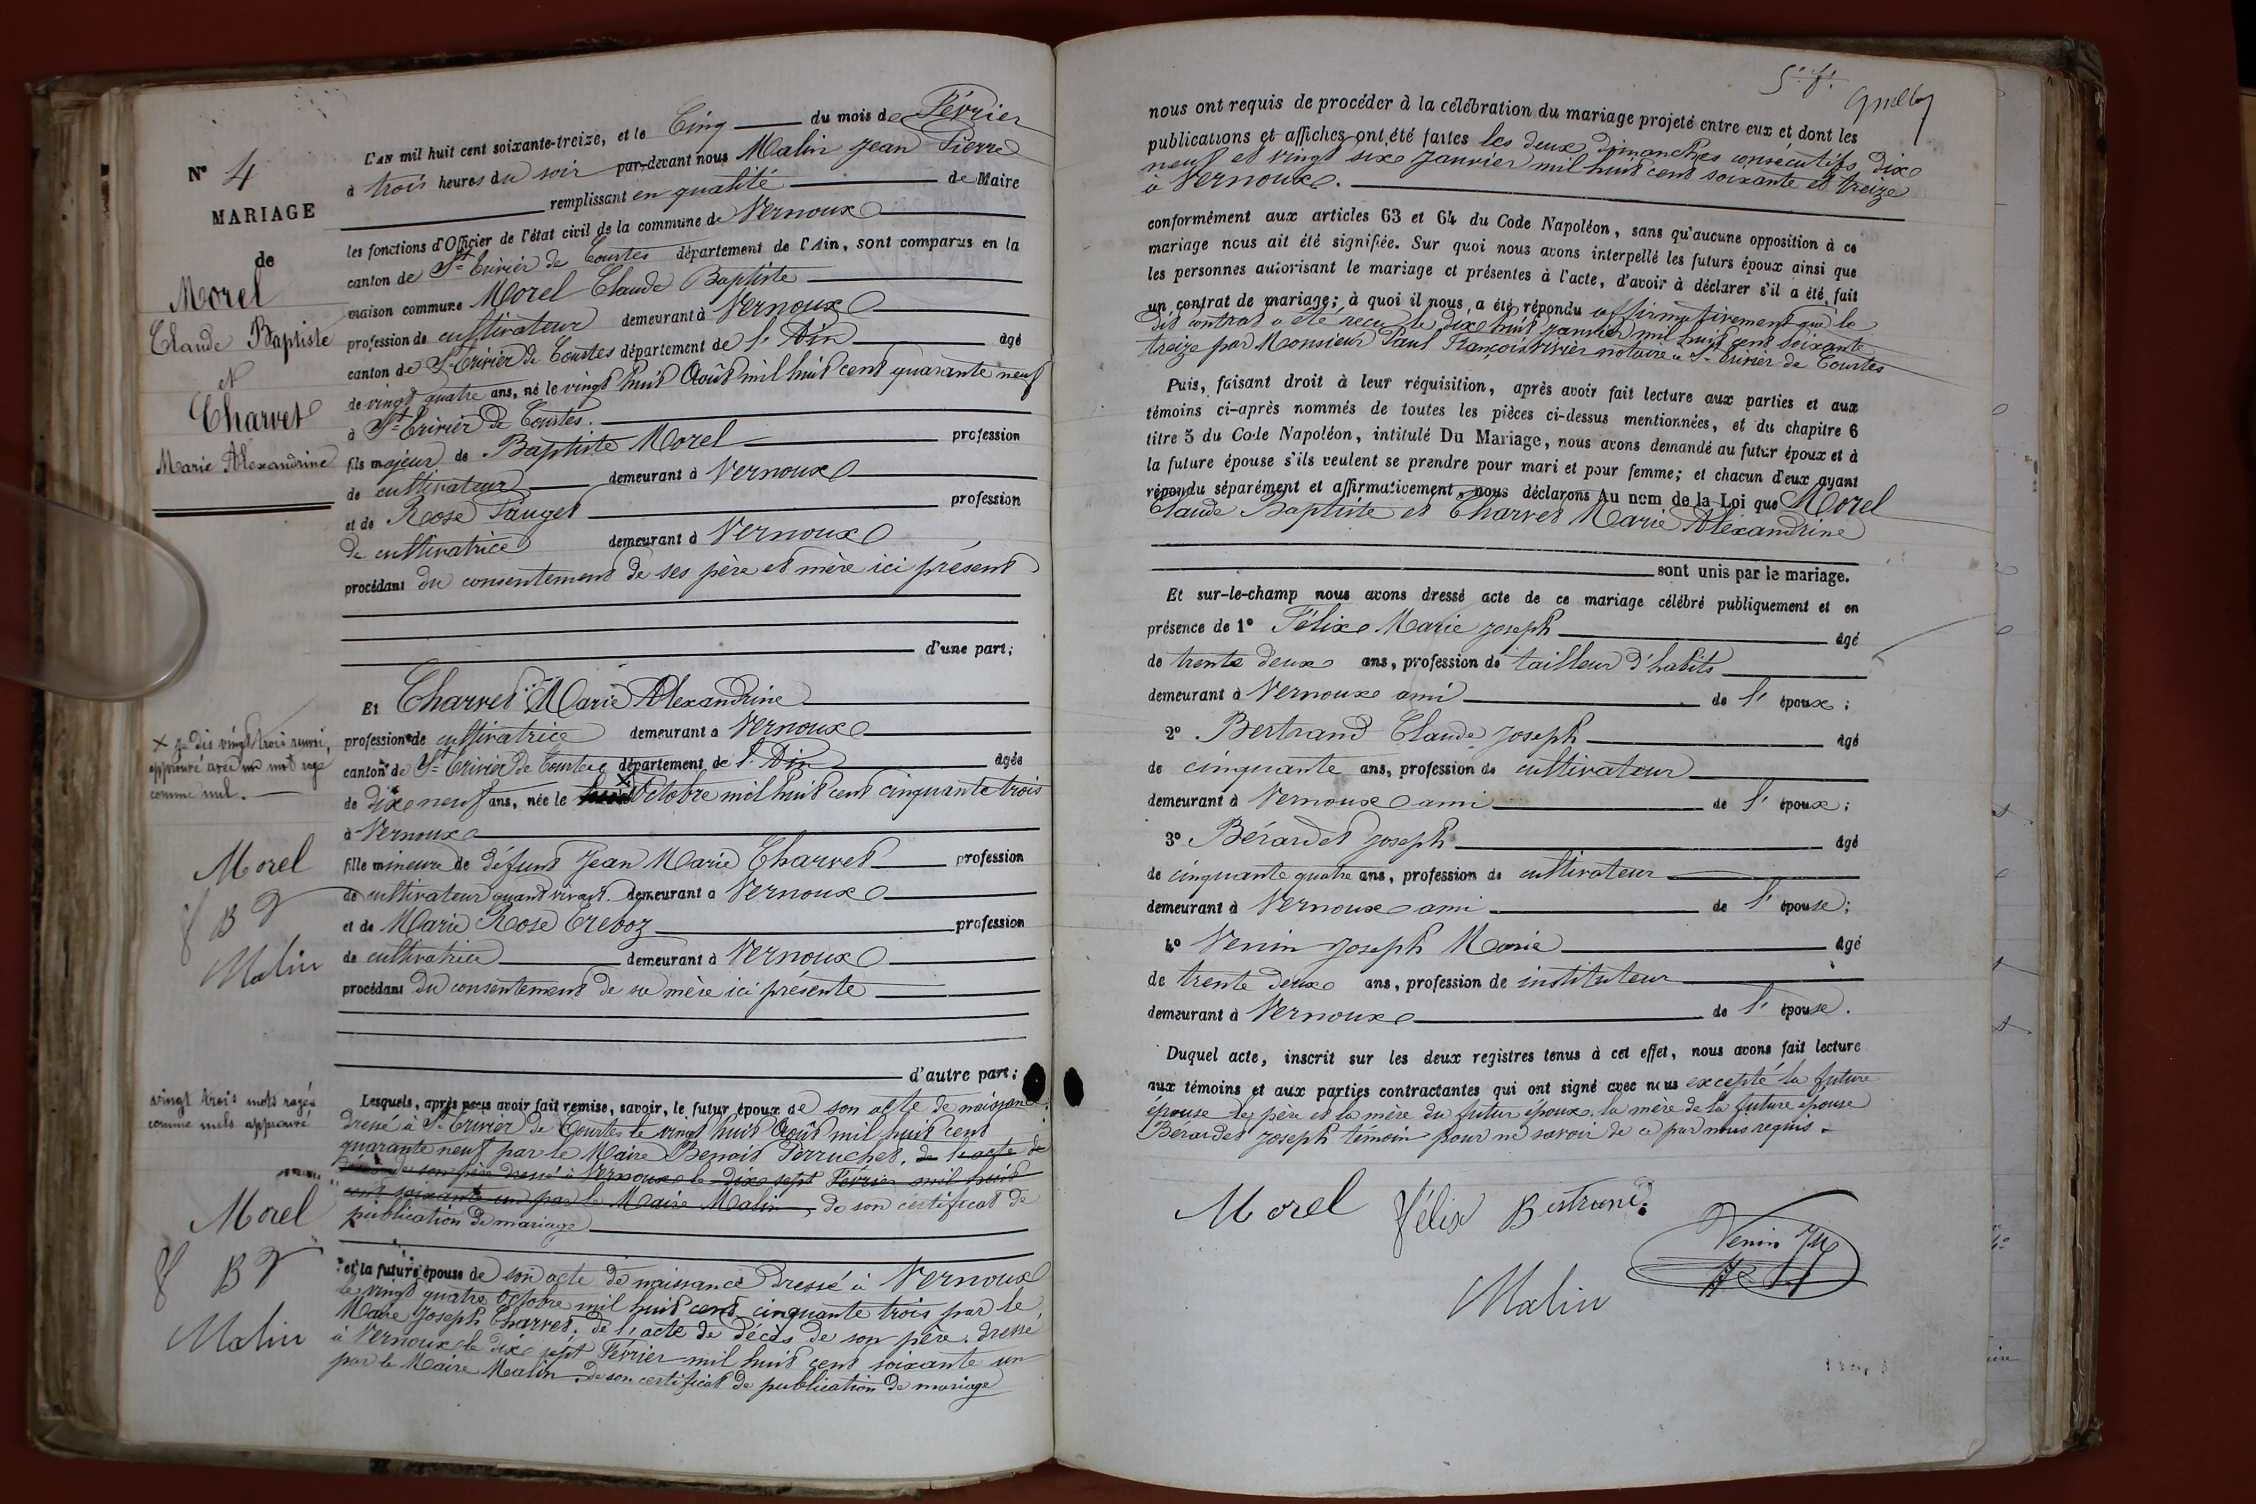 N° 4
MARIAGE
de
Morel
Claude Baptiste
et
Charvet
Marie Alexandrine
L'AN mil huit cent soixante-treize, et le Cinq du mois de Février
à trois heures du soir par-devant nous Malin Jean Pierre
remplissant en qualité de Maire
les fonctions d'Officier de l'état civil de la commune de Vernoux
canton de St Trivier de Courtes département de l'Ain, sont comparus en la
maison commune Morel Claude Baptiste
profession de cultivateur demeurant à Vernoux
canton de St Trivier de Courtes département de l'Ain âgé
de vingt quatre ans, né le vingt huit Août mil huit cent quarante neuf
à St Trivier de Courtes.
fils majeur de Baptiste Morel profession
de cultivateur demeurant à Vernoux
et de Rose Pauget profession
de cultivatrice demeurant à Vernoux
procédant du consentement de ses père et mère ici présent
d'une part;
Et Charvet Marie Alexandrine
profession de cultivatrice demeurant à Vernoux
canton de St Trivier de Courtes département de l'Ain âgée
de dix neuf ans, née le Octobre mil huit cent cinquante trois
à Vernoux
fille mineure de défunt Jean Marie Charvet profession
de cultivateur quand vivait demeurant à Vernoux
et de Marie Rose Treboz profession
de cultivatrice demeurant à Vernoux
procédant du consentement de sa mère ici présente
d'autre part;
Lesquels, après nous avoir fait remise, savoir, le futur époux de son acte de naissance
dressé à St Trivier de Courtes le vingt huit Août mil huit cent
quarante neuf par le Maire Benoit Perruchet. de l'acte de
de son père dressé à Vernoux le dix sept Février mil huit
cent soixante un par le Maire Malin, de son certificat de
publication de mariage
et la future épouse de son acte de naissance dressé à Vernoux
le vingt quatre Octobre mil huit cent cinquante trois par le
Maire Joseph Charvet. de l'acte de décès de son père. dressé
à Vernoux le dix sept Février mil huit cent soixante un
par le Maire Malin. de son certificat de publication de mariage
x je dis vingt trois
approuvé avec un mot rayé
comme nul.
Morel
f B J
Malin
vingt trois mots rayés
comme nuls approuvé
Morel
f B J
Malin
nous ont requis de procéder à la célébration du mariage projeté entre eux et dont les
publications et affiches ont été faites les deux dimanches consécutifs dix
neuf et vingt six Janvier mil huit cent soixante et treize
à Vernoux.
conformément aux articles 63 et 64 du Code Napoléon, sans qu'aucune opposition à ce
mariage nous ait été signifiée. Sur quoi nous avons interpellé les futurs époux ainsi que
les personnes autorisant le mariage et présentes à l'acte, d'avoir à déclarer s'il a été fait
un contrat de mariage; à quoi il nous a été répondu affirmativement que le
dit contrat a été reçu le dix huit janvier mil huit cent soixante
treize par Monsieur Paul François notaire à St Trivier de Courtes
Puis, faisant droit à leur réquisition, après avoir fait lecture aux parties et aux
témoins ci-après nommés de toutes les pièces ci-dessus mentionnées, et du chapitre 6
titre 5 du Code Napoléon, intitulé Du Mariage, nous avons demandé au futur époux et à
la future épouse s'ils veulent se prendre pour mari et pour femme; et chacun d'eux ayant
répondu séparément et affirmativement, nous déclarons Au nom de la Loi que Morel
Claude Baptiste et Charvet Marie Alexandrine
sont unis par le mariage.
Et sur-le-champ nous avons dressé acte de ce mariage célébré publiquement et en
présence de 1° Félix Marie Joseph âgé
de trente deux ans, profession de tailleur d'habits
demeurant à Vernoux ami de l'époux;
2° Bertrand Claude Joseph âgé
de cinquante ans, profession de cultivateur
demeurant à Vernoux ami de l'époux;
3° Bérardet Joseph âgé
de cinquante quatre ans, profession de cultivateur
demeurant à Vernoux ami de l'épouse;
4° Venin Joseph Marie âgé
de trente deux ans, profession de instituteur
demeurant à Vernoux de l'épouse.
Duquel acte, inscrit sur les deux registres tenus à cet effet, nous avons fait lecture
aux témoins et aux parties contractantes qui ont signé avec nous excepté la future
épouse le père et la mère du futur époux. la mère de la future épouse
Bérardet Joseph témoin pour ne savoir de ce par nous requis.
Morel Félix Bertrand
Venin
Malin